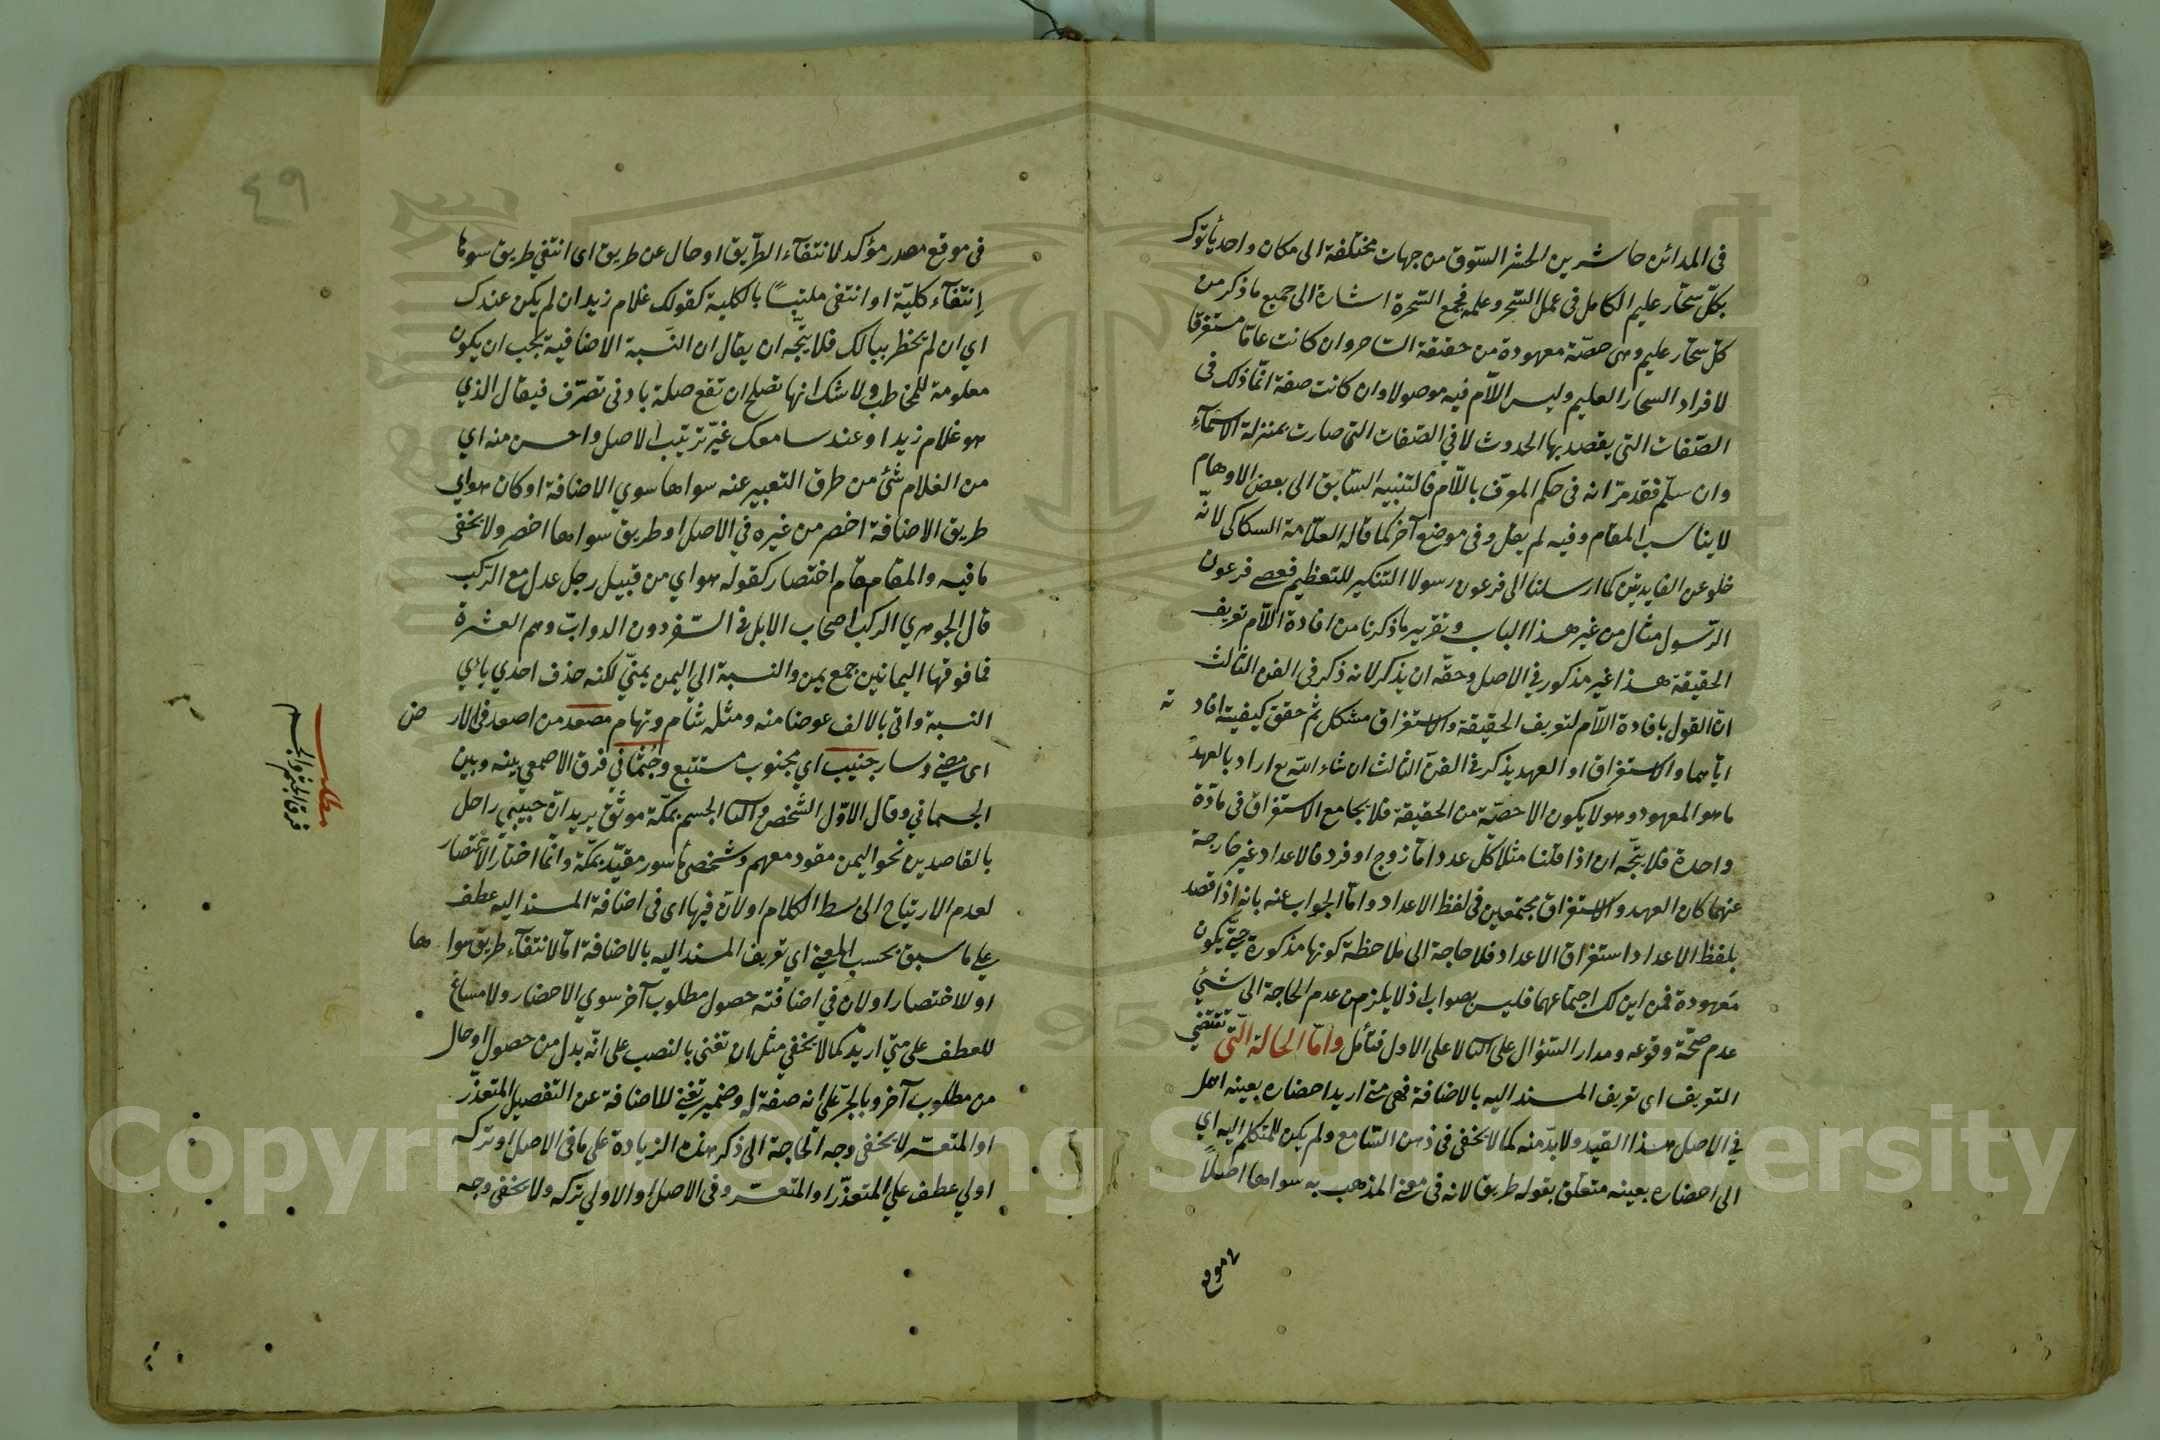 في المدائن حاشرين الحشر السّوق من جهات مختلفة الى مكان واحد يأتوك
بكلّ سحّار عليم الكامل في عمل السّحر وعلمه فجمع السّحرة اشارة الى جميع ما ذكر من
كلّ سحّار عليم وهي حصّة معهودة من حقيقة الساحر وان كانت عامّا مستغرقا
لافراد السحار العليم وليس اللّام فيه موصولا وان كانت صفة انّما ذلك في
الصّفات التي يقصد بها الحدوث لا في الصّفات التي صارت بمنزلة الاسمآء
وان سلّم فقد مرّ انه في حكم المعرّف باللّام فالتنبيه السّابق الى بعض الاوهام
لا يناسب المقام وفيه لم يقل وفي موضع آخر كما قاله العلّامة السكاكى لانّه
خلو عن الفايدتين كما ارسلنا الى فرعون رسولا التنكير للتعظيم فعصى فرعون
الرّسول مثال من غير هذا الباب وتقرير ما ذكرنا من افادة اللّام تعريف
الحقيقة هذا غير مذكور في الاصل وحقّه ان يذكر لانه ذكر في الفن الثالث
انّ القول بافادة اللّام لتعريف الحقيقة والاستغراق مشكل ثم حقق كيفية افاد ته
ايّاهما والاستغراق او العهد يذكر في الفنّ الثالث ان شاء الله تع اراد بالعهد
ما هو المعهود وهو لا يكون الا حصّة من الحقيقة فلا يجامع الاستغراق في مادّة
واحدة فلا يتّجه ان اذا قلنا مثلا كل عدد امّا زوج او فرد فالاعداد غير خارجة
عنهما كان العهد والاستغراق مجتمعين في لفظ الاعداد وامّا الجواب عنه بانه اذا قصد
بلفظ الاعداد استغراق الاعداد فلا حاجة الى ملاحظة كونها مذكورة حتّى يكون
معهودة فمن اين لك اجتماعهما فليس بصواب اذ لا يلزم من عدم الحاجة الى شيئ
عدم صحّة وقوعه ومدار السّؤال على الثا لا على الاول فتأمل وامّا الحالة الّتى تقتضي
التعريف اي تعريف المسند اليه بالاضافة فهى متى اريد احضاره بعينه اهل
في الاصل هذا القيد ولا بدّ منه كما لا يخفى في ذهن السّامع ولم يكن للمتكلم اليه اي
الى احضاره بعينه متعلّق بقوله طريق لانه في معنى المذهب به سواها اصلًا
في موقع مصدر مؤكد لانتفآء الطّريق او حال عن طريق اى انتفي طريق سوها
اِنتفآء كليّة او انتفى ملتبسًا بالكلية كقولك غلام زيد ان لم يكن عندك
اي ان لم يخطر ببالك فلا يتّجه ان يقال ان النّسبة الاضافية يجب ان يكون
معلومة للمخاطب ولا شك انها تصلح ان تقع صلة بادنى تصرّف فيقال الذي
هو غلام زيد او عند سامعك غيّر ترتيب الاصل واحسن منه اي
من الغلام شئ من طرق التعبير عنه سواها سوي الاضافة او كان هو اي
طريق الاضافة اخصر من غيره في الاصل او طريق سواها اخصر ولا يخفى
ما فيه والمقام مقام اختصار كقوله هواي من قبيل رجل عدل مع الركب
قال الجوهري الركب اصحاب الابل في السّفر دون الدوابّ وهم العشرة
فما فوقها اليمانين جمع يمن والنسبة الي اليمن يمنيّ لكنه حذف احدي يائي
النسبة واتى بالالف عوضا منه ومثله شام وتهام مصعد من اصعد في الار ض
اى مضى وسار جنيب اي مجنوب مستتبع وجثماني فرق الاصمعي بينه وبين
الجسماني وقال الاوّل الشّخص والثا الجسم بمكّة موثق يريد انّ حبيبي راحل
بالقاصدين نحو اليمن مقود معهم وشخصى مأسور مقيّد بمكّة وانّما اختار الاختصار
لعدم الارتياح الى بسط الكلام او لانّ فيها اى في اضافة المسند اليه عطف
على ما سبق بحسب المعنى اي تعريف المسند اليه بالاضافة امّا لانتفآء طريق سوا ها
او للاختصار او لان في اضافته حصول مطلوب آخر سوي الاحضار ولا مساغ
للعطف على متى اريد كما لا يخفي مثل ان تغنى بالنصب على انّه بدل من حصول او حال
من مطلوب آخر وبالجرّ علي انه صفة له وضمير تغني للاضافة عن التفصيل المتعذّر
او المتعسّر لا يخفى وجه الحاجة الى ذكر هذه الزيادة على ما في الاصل او تركه
اولي عطف علي المتعذّر او المتعسّر وفي الاصل او الاولي تركه ولا يخفى وجه
في موقع
مطلب
فرق الجثم والجسم
٤٩
Copyright © King Saud University